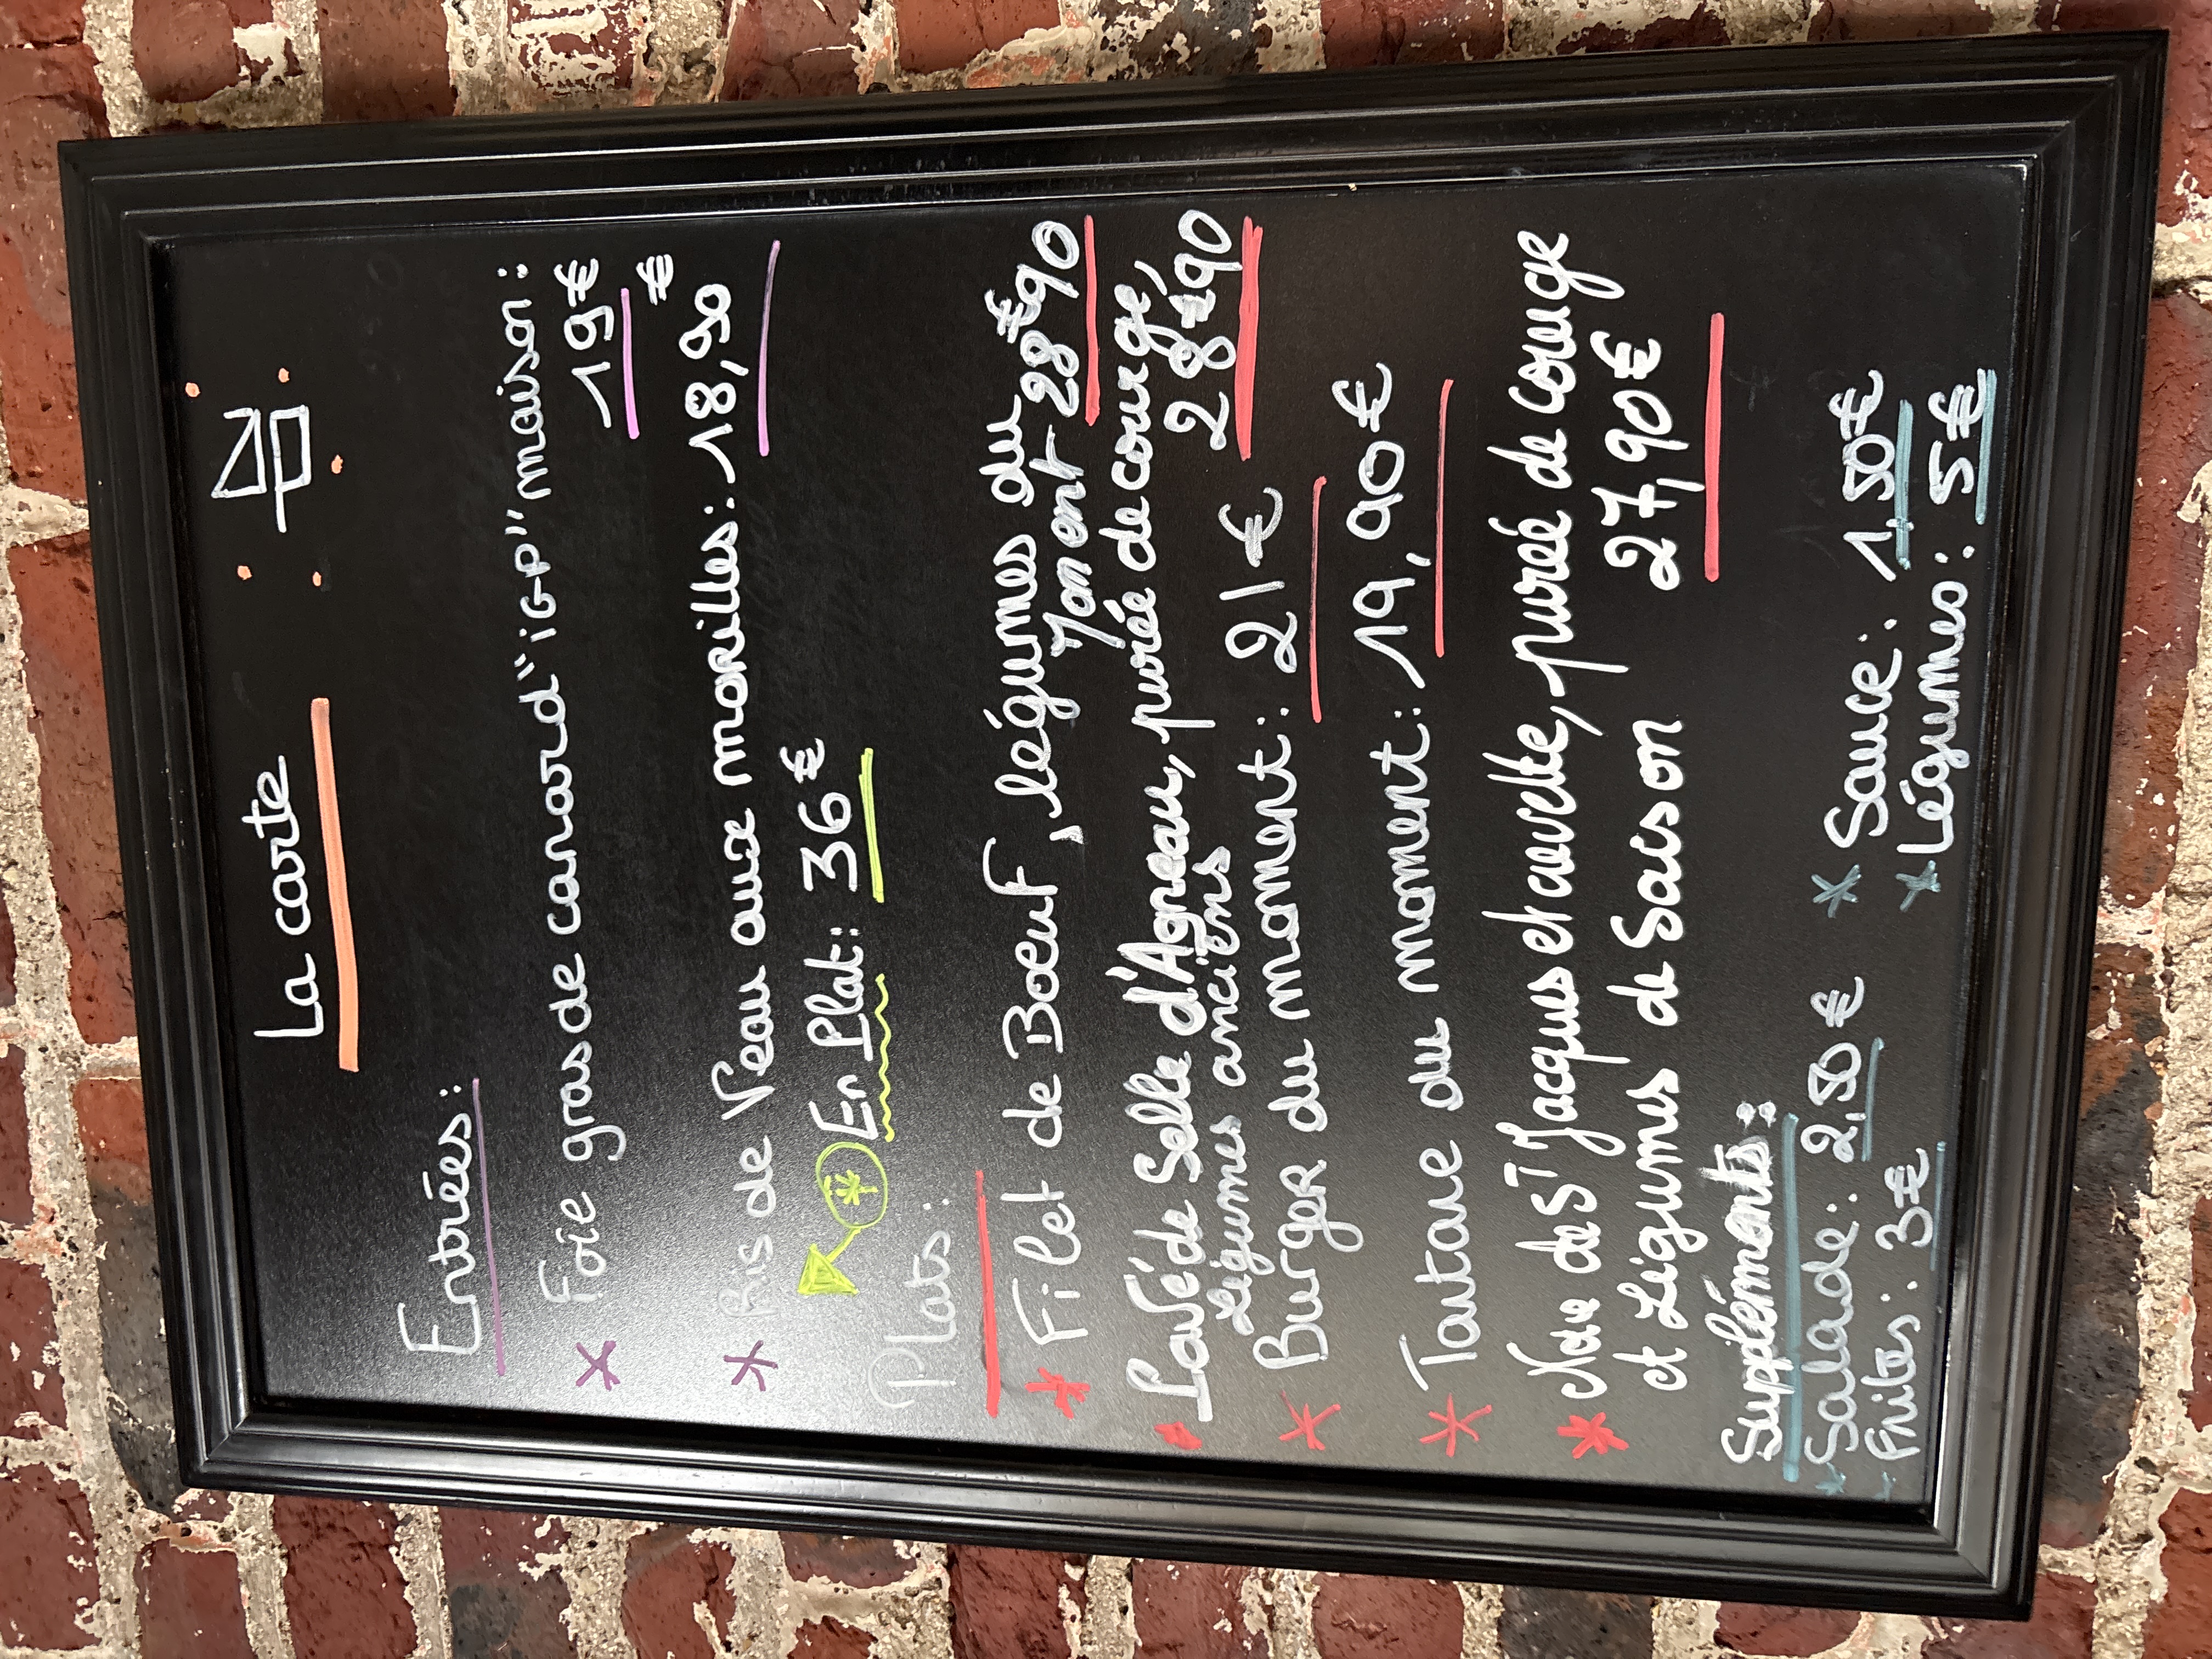 La carte
Entrées :
* Foie gras de canard "IGP" maison :
19€
* Ris de Veau aux morilles : 18,90€
* En Plat : 36€
Plats :
* Filet de Boeuf, légumes du
moment 28€90
Pavé de Selle d'Agneau, purée de courge,
légumes anciens 28€90
* Burger du moment : 21€
* Tartare du moment : 19,90€
* Noix de St Jacques et crevette, purée de courge
et Légumes de Saison 27,90€
Suppléments :
* Salade : 2,50€ * Sauce : 1,50€
- Frites : 3€ * Légumes : 5€